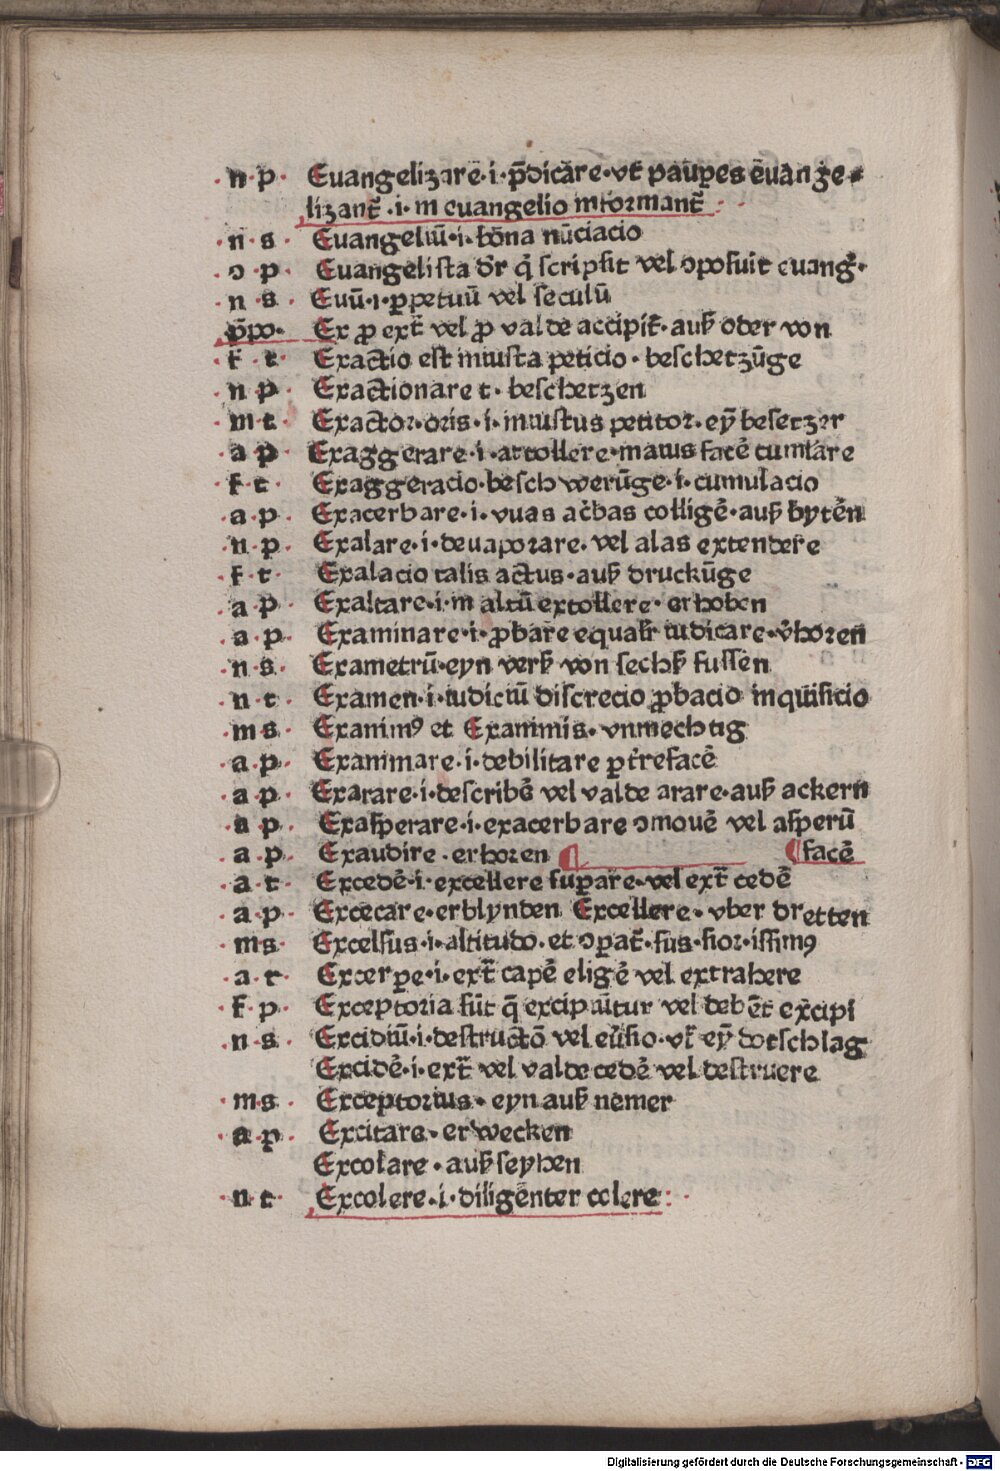 n p Euangelizare·i·p̄dicāre·vt̄ paup̱es ēuange⸗
lizant̄·i·in euangelio informant̄
n s Euangeliū·i·bōna nūciacio
ɔ p Euangelista dr̄ q̇ scripsit vel ɔposuit euang̓·
n s Euū·i·ꝑpetuū vel seculū
p̄po· Ex ꝓ ext̄ vel ꝓ valde accipit̄·auß oder von
f t Exactio est iniusta peticio·beschetzūge
n p Exactionare t·beschetzen
m t Exactor·oris·i·iniustus petitor·eȳ besetzer
a p Exaggerare·i·attollere·maius facē cumlāre
f t Exaggeracio·beschwerūge·i·cumulacio
a p Exacerbare·i·vuas ac̄bas colligē·auß bytēn
n p Exalare·i·deuaporare·vel alas extendere
f t Exalacio talis actus·auß druckūge
a p Exaltare·i·in altū extollere·erhoben
a p Examinare·i·ꝓbare equalr̄ iudicare·v̓horen
n s Exametrū·eyn verß von sechß fussen
n t Examen·i·iudiciū discrecio ꝓbacio inquisicio
m s Exanimꝰ et Exanimis·vnmechtig
a p Exanimare·i·debilitare ꝑt̓refacē
a p Exarare·i·describē vel valde arare·auß ackern
a p Exasperare·i·exacerbare ɔmouē vel asperū
a p Exaudire·erhoren ¶ ¶facē
a t Excedē·i·excellere suꝑare·vel ext̄ cedē
a p Excecare·erblynden Excellere·vber dretten
m s Excelsus·i·altitudo·et ɔparat̄·sus·sior·issimꝰ
a t Excerpe·i·ext̄ capē eligē vel extrahere
f p Exceptoria sūt q̄ excipiūtur vel debēt excipi
n s Excidiū·i·destructō vel eu̓sio·vt̄ eȳ dotschlag
Excidē·i·ext̄ vel valde cedē vel destruere
m s Exceptorius·eyn auß nemer
a p Excitare·erwecken
Excolare·außseyhen
n t Excolere·i·diligēnter colere:
Digitalisierung gefördert durch die Deutsche Forschungsgemeinschaft - DFG